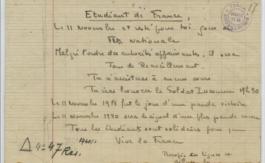 Etudiant de France,
Le 11 Novembre est resté pour toi jour de
Fête Nationale
Malgré l'ordre des autorités opprimantes, il sera
Jour de Recueillement.
Tu n'assisteras à aucun cours
Tu iras honorer le Soldat Inconnu 17h30
Le 11 Novembre 1918 fut le jour d'une grande victoire
Le 11 Novembre 1940 sera le signal d'une plus grande encore
Tous les étudiants sont solidaires pour
Vive la France
4247 Res.